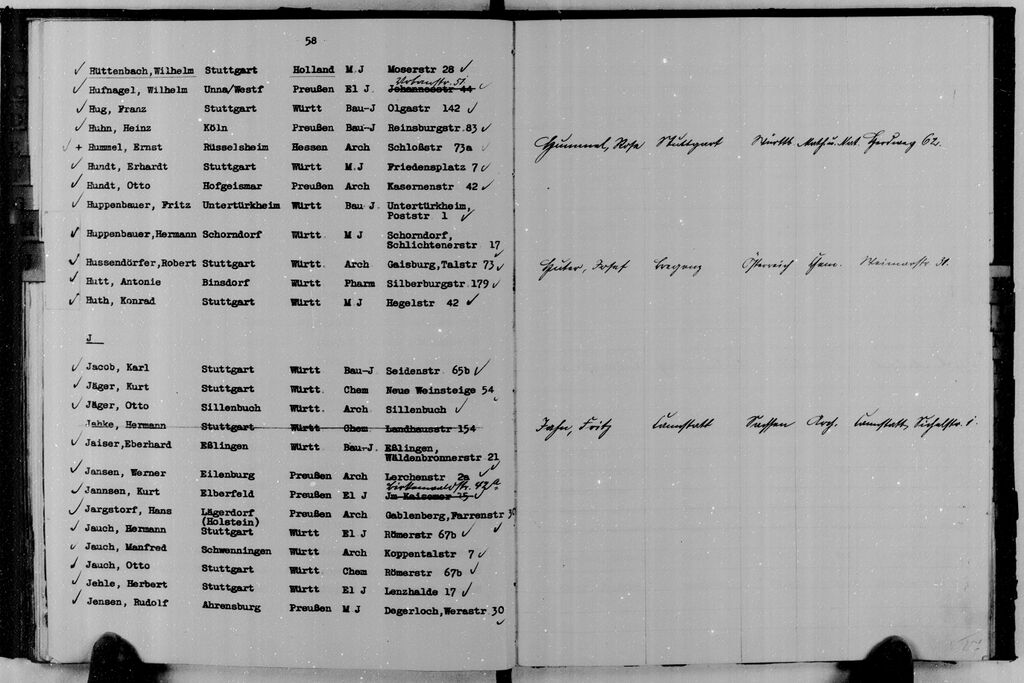 58
Hüttenbach,Wilhelm Stuttgart Holland M J Moserstr 28 ✓
Urbanstr. 51.
Hufnagel, Wilhelm Unna/Westf Preußen El J. Johannesstr 44
Hug, Franz Stuttgart Württ Bau-J Olgastr 142
Huhn, Heinz Köln Preußen Bau-J Reinsburgstr.83
+ Hummel, Ernst Rüsselsheim Hessen Arch Schloßstr 73a
Hundt, Erhardt Stuttgart Württ. M J Friedensplatz 7
Hundt, Otto Hofgeismar Preußen Arch Kasernenstr 42
Huppenbauer, Fritz Untertürkheim Württ Bau J. Untertürkheim,
Poststr 1
Huppenbauer,Hermann Schorndorf Württ. M J Schorndorf,
Schlichtenerstr 17
Hussendörfer,Robert Stuttgart Württ. Arch Gaisburg,Talstr 73
Hutt, Antonie Binsdorf Württ Pharm Silberburgstr 179
Huth, Konrad Stuttgart Württ M J Hegelstr 42
J
Jacob, Karl Stuttgart Württ Bau-J Seidenstr 65b
Jäger, Kurt Stuttgart Württ. Chem Neue Weinsteige 54
Jäger, Otto Sillenbuch Württ. Arch Sillenbuch
Jahke, Hermann Stuttgart Württ Chem Landhausstr 154
Jaiser,Eberhard Eßlingen Württ Bau-J. Eßlingen,
Wäldenbronnerstr 21
Jansen, Werner Eilenburg Preußen Arch Lerchenstr 2a
Birkenwaldstr. 42
Jannsen, Kurt Elberfeld Preußen El J Jm Kaisemer 25
Jargstorf, Hans Lägerdorf Preußen Arch Gablenberg,Farrenstr 30
(Holstein)
Jauch, Hermann Stuttgart Württ El J Römerstr 67b
Jauch, Manfred Schwenningen Württ Arch Koppentalstr 7
Jauch, Otto Stuttgart Württ Chem Römerstr 67b
Jehle, Herbert Stuttgart Württ El J Lenzhalde 17
Jensen, Rudolf Ahrensburg Preußen M J Degerloch,Werastr 30
Hummel, Rosa Stuttgart Württb. Math. u. Nat. Herdweg 62.
Huter, Josef Bregenz Österreich Chem. Weimarstr 31.
Jahn, Fritz Cannstatt Sachsen Arch. Cannstatt,